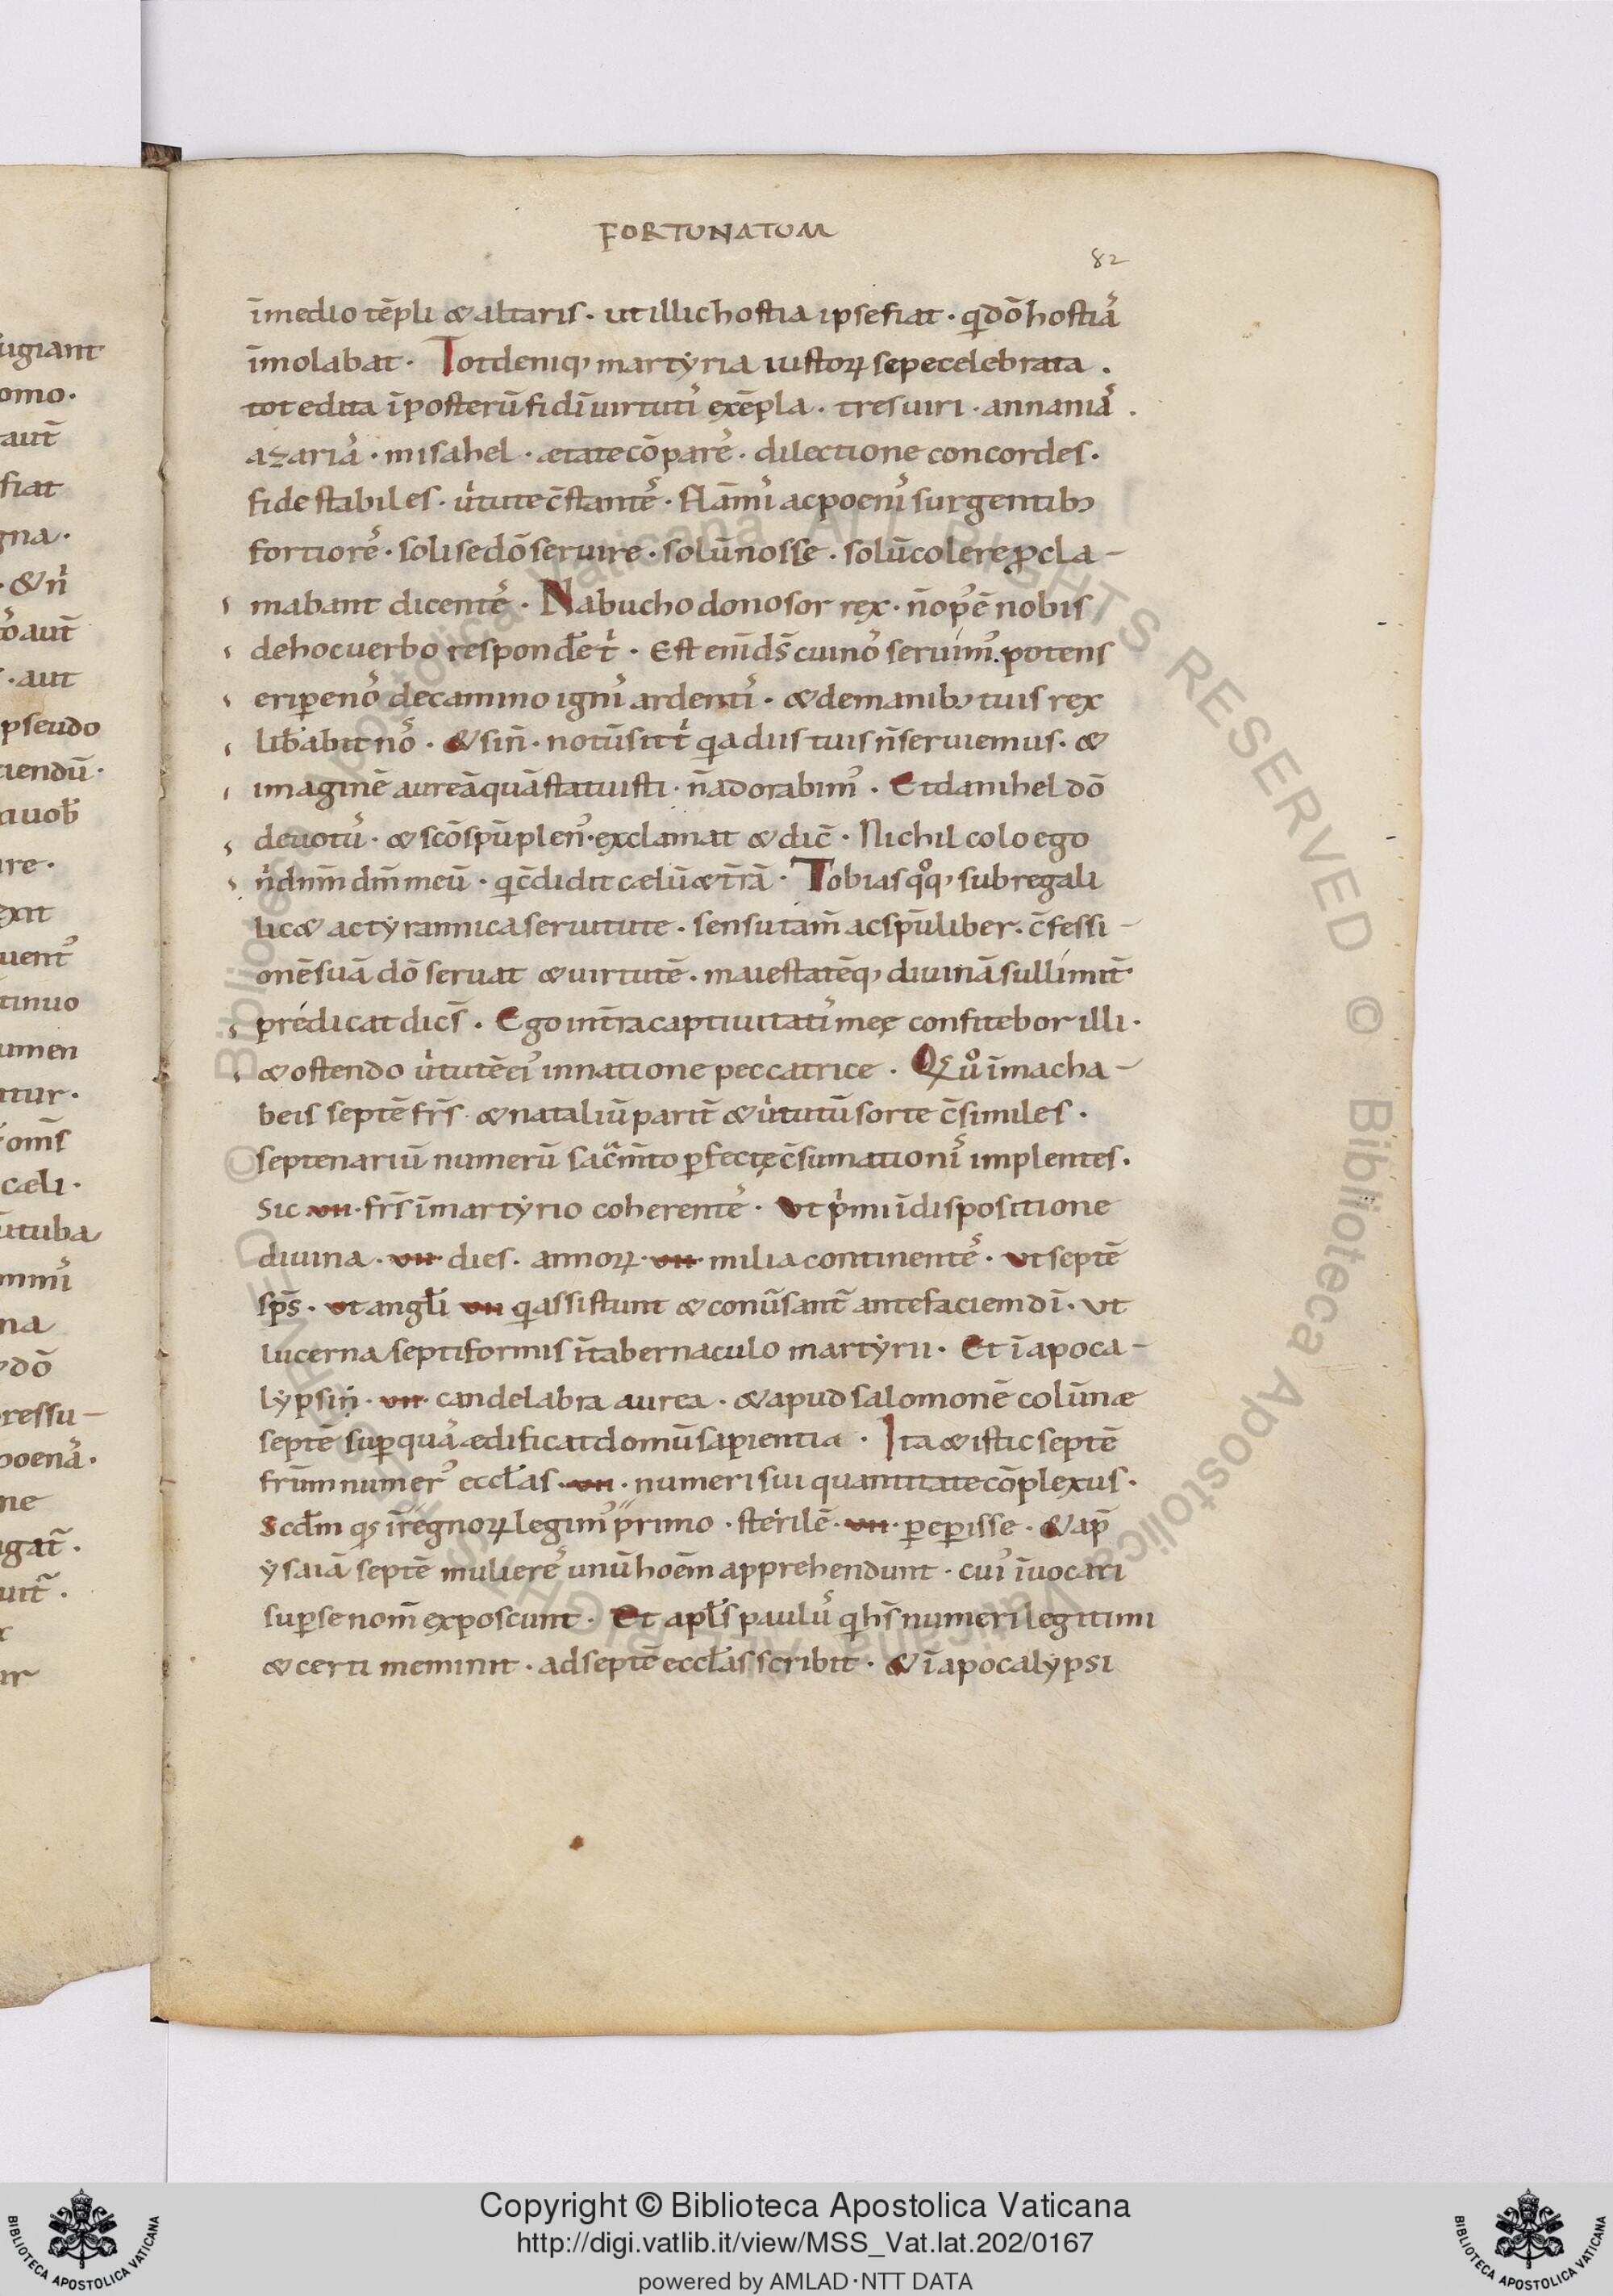 FORTUNATUM
82
īmedio tēpli & altaris · ut illic hostia ipse fiat · q̄ dō hostiā
īmolabat · Tot deniq; martyria iustoꝝ sepe celebrata .
tot edita ī posterū fidī uirtuti᷒ exēpla · tres uiri · annania᷒ .
azaria᷒ · misahel · ætate cōpare᷒ · dilectione concordes ·
fide stabiles · u̇tute c̄stante᷒ · Flāmi᷒ ac poeni᷒ surgentib;
fortiore᷒ · soli se dō seruire · solū nosse · solū colere ꝓcla-
mabant dicente᷒ · Nabuchodonosor rex · n̄ op᷒ ē nobis
de hoc uerbo respondēt̓ · Est enī ds̄ cui no᷒ seruim᷒ . potens
eriꝑe no᷒ de camino igni᷒ ardenti᷒ · & de manib; tuis rex
lib̄abit no᷒ · & sin̄ · notū sit t̓ q̓a diis tuis n̄ seruiemus · &
imaginē aureā quā statuisti · n̄ adorabim᷒ · Et danihel dō
deuotu᷒ · & scō spū plen᷒ · exclamat & dic̄ · Nichil colo ego
n̓ dnm̄ dm̄ meū · q̓ c̄didit cælū & t̄rā · Tobias qͦq; sub regali
lic& ac tyrannica seruitute · sensu tam̄ ac spū liber · c̄fessi-
onē suā dō seruat & uirtutē · maiestatēq; diuinā sullimit̄
predicat dicēs · Ego in t̄ra captiuitati᷒ meę confitebor illi ·
& ostendo u̇tutē ei᷒ in natione peccatrice · Q; uͦ ī macha-
beis septē frs̄ & nataliū parit̄ & u̇tutū sorte c̄similes ·
septenariū numerū sac̄m̄to ꝑfectę c̄sumationi᷒ implentes ·
Sic ·vii· frs̄ ī martyrio coherente᷒ · Vt p̓mi ī dispositione
diuina · vii dies · annoꝝ · vii · milia continente᷒ · Vt septē
sps̄ · Vt angl̄i vii q̓ assistunt & conūsant̄ ante faciem dī · Vt
lucerna septiformis ī tabernaculo martyrii · Et ī apoca-
lypsin · vii · candelabra aurea · & apud salomonē colūnæ
septē suꝑ qua᷒ ædificat domū sapientia · Ita & istic septē
frūm numer᷒ eccl̄as · vii · numeri sui quantitate cōplexus ·
Scd̄m q; ī regnoꝝ legim᷒ primo · sterilē · vii · peꝑisse · & ap̄
ysaiā septē muliere᷒ unū hoēm apprehendunt · cui᷒ īuocari
suꝑ se nom̄ exposcunt · Et apl̄s paulu᷒ q̓ hs̄ numeri legitimi
& certi meminit · ad septē eccl̄as scribit · & ī apocalypsi
ugiant
omo ·
aut̄
fiat
gna ·
· & n̓
aut̄
· aut
pseudo
tiendū ·
re ·
exit
uent᷒
tinuo
umen
tur ·
oms̄
cæli ·
tuba
na
dō
ressu-
poena᷒ ·
ne
© Biblioteca Apostolica Vaticana ALL RIGHTS RESERVED
© Biblioteca Apostolica Vaticana ALL RIGHTS RESERVED
Copyright © Biblioteca Apostolica Vaticana
http://digi.vatlib.it/view/MSS_Vat.lat.202/0167
powered by AMLAD·NTT DATA
BIBLIOTECA APOSTOLICA VATICANA
BIBLIOTECA APOSTOLICA VATICANA